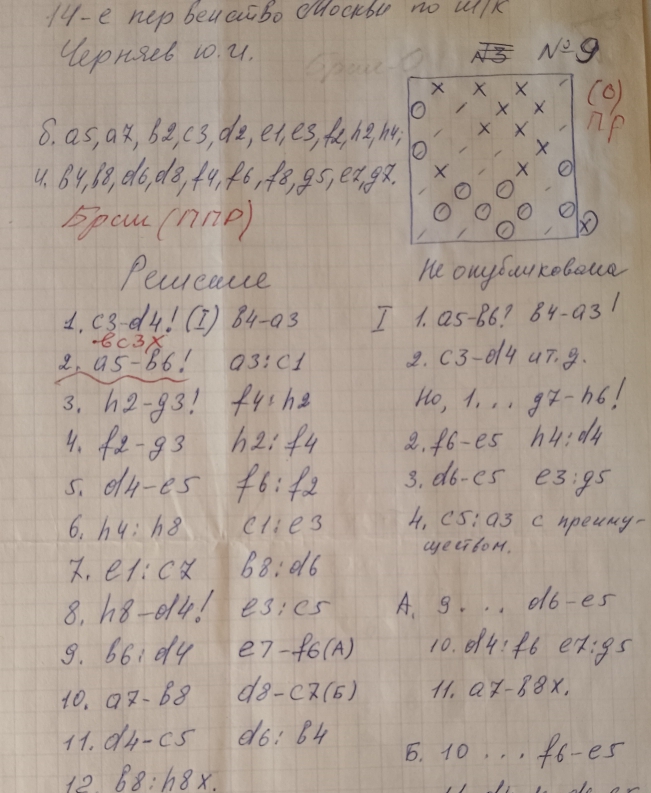 14-е первенство Москвы по ш/к
Черняев Ю.И.
№9
(О)
ПР
б. a5, a7, b2, c3, d2, e1, e3, f2, h2, h4;
ч. b4, b8, d6, d8, f4, f6, f8, g5, e7, g7.
Брак (ППР)
Решение
1. c3-d4! (I) b4-a3
вс3х
2. a5-b6! a3:c1
3. h2-g3! f4:h2
4. f2-g3 h2:f4
5. d4-e5 f6:f2
6. h4:h8 c1:e3
7. e1:c7 b8:d6
8. h8-d4! e3:c5
9. b6:d4 e7-f6(А)
10. a7-b8 d8-c7(Б)
11. d4-c5 d6:b4
12. b8:h8x.
Не опубликована
I 1. a5-b6? b4-a3!
2. c3-d4 и т.д.
Но, 1... g7-h6!
2. f6-e5 h4:d4
3. d6-c5 e3:g5
4. c5:a3 с преиму-
ществом.
А. 9... d6-e5
10. d4:f6 e7:g5
11. a7-b8x.
Б. 10... f6-e5